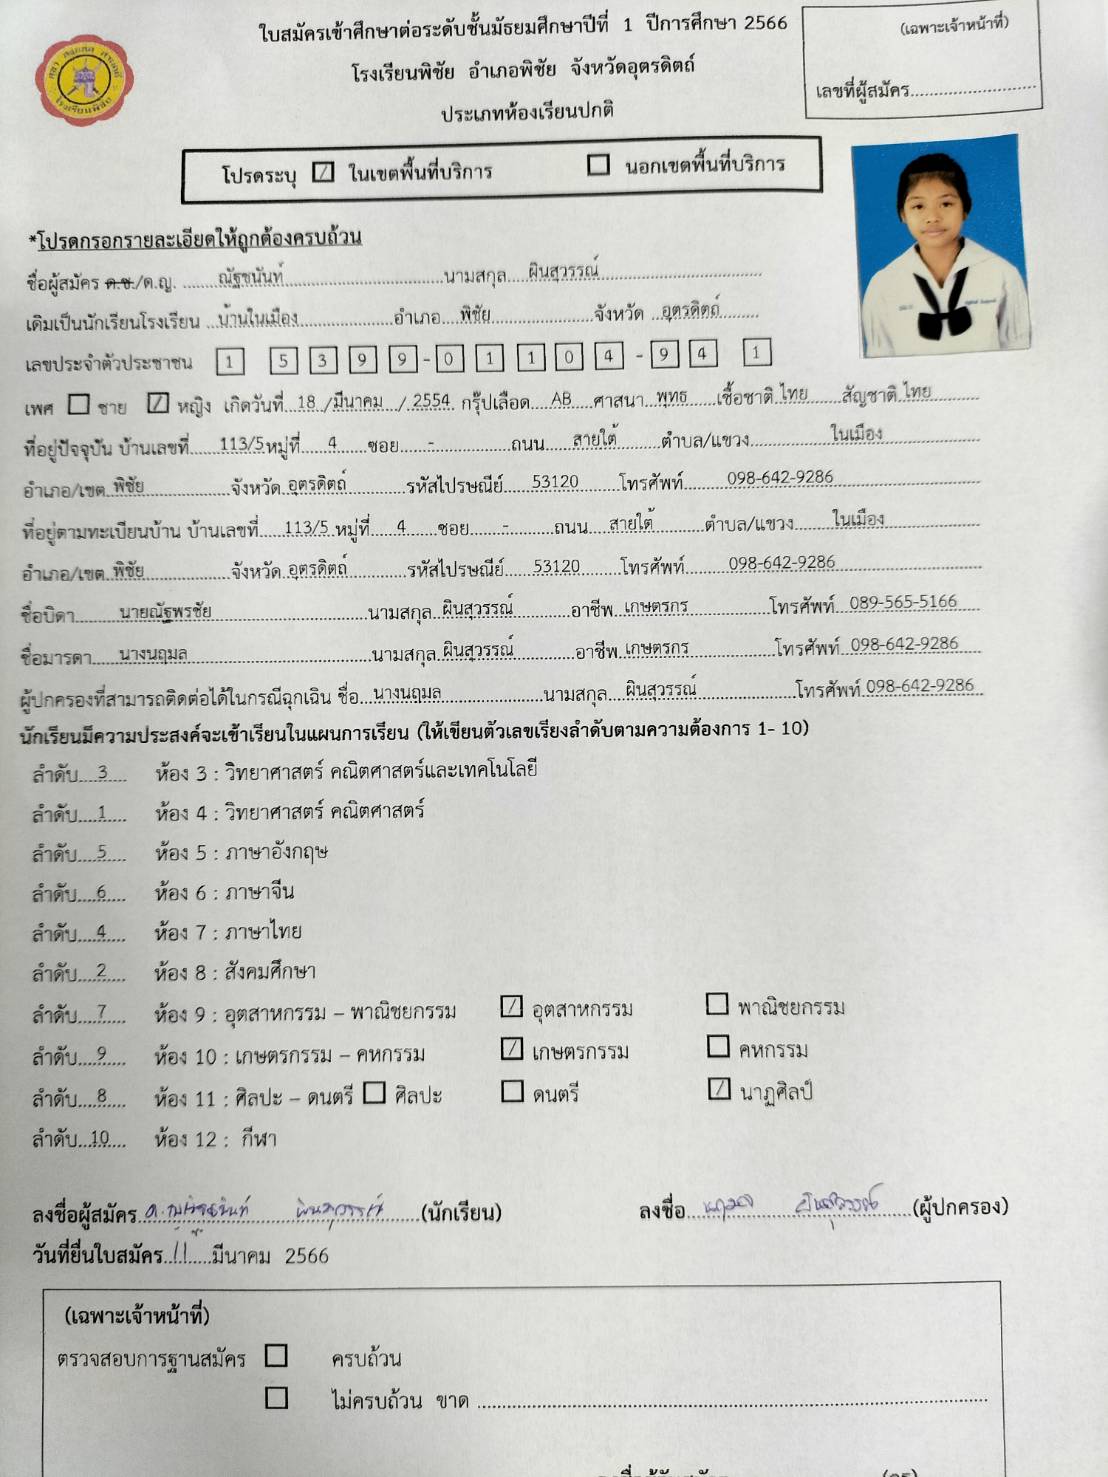 ใบสมัครเข้าศึกษาต่อระดับชั้นมัธยมศึกษาปีที่ 1 ปีการศึกษา 2566
(เฉพาะเจ้าหน้าที่)
โรงเรียนพิชัย อำเภอพิชัย จังหวัดอุตรดิตถ์
เลขที่ผู้สมัคร
ประเภทห้องเรียนปกติ
โปรดระบุ ในเขตพื้นที่บริการ นอกเขตพื้นที่บริการ
*โปรดกรอกรายละเอียดให้ถูกต้องครบถ้วน
ชื่อผู้สมัคร ด.ช./ด.ญ. ณัฐชนันท์ นามสกุล ผินสุวรรณ์
เดิมเป็นนักเรียนโรงเรียน บ้านในเมือง อำเภอ พิชัย จังหวัด อุตรดิตถ์
เลขประจำตัวประชาชน 1 5 3 9 9 - 0 1 1 0 4 - 9 4 1
เพศ ชาย / หญิง เกิดวันที่ 18 / มีนาคม / 2554 กรุ๊ปเลือด AB ศาสนา พุทธ เชื้อชาติ ไทย สัญชาติ ไทย
ที่อยู่ปัจจุบัน บ้านเลขที่ 113/5 หมู่ที่ 4 ซอย - ถนน สายใต้ ตำบล/แขวง ในเมือง
อำเภอ/เขต พิชัย จังหวัด อุตรดิตถ์ รหัสไปรษณีย์ 53120 โทรศัพท์ 098-642-9286
ที่อยู่ตามทะเบียนบ้าน บ้านเลขที่ 113/5 หมู่ที่ 4 ซอย - ถนน สายใต้ ตำบล/แขวง ในเมือง
อำเภอ/เขต พิชัย จังหวัด อุตรดิตถ์ รหัสไปรษณีย์ 53120 โทรศัพท์ 098-642-9286
ชื่อบิดา นายณัฐพรชัย นามสกุล ผินสุวรรณ์ อาชีพ เกษตรกร โทรศัพท์ 089-565-5166
ชื่อมารดา นางนฤมล นามสกุล ผินสุวรรณ์ อาชีพ เกษตรกร โทรศัพท์ 098-642-9286
ผู้ปกครองที่สามารถติดต่อได้ในกรณีฉุกเฉิน ชื่อ นางนฤมล นามสกุล ผินสุวรรณ์ โทรศัพท์ 098-642-9286
นักเรียนมีความประสงค์จะเข้าเรียนในแผนการเรียน (ให้เขียนตัวเลขเรียงลำดับตามความต้องการ 1- 10)
ลำดับ 3 ห้อง 3 : วิทยาศาสตร์ คณิตศาสตร์และเทคโนโลยี
ลำดับ 1 ห้อง 4 : วิทยาศาสตร์ คณิตศาสตร์
ลำดับ 5 ห้อง 5 : ภาษาอังกฤษ
ลำดับ 6 ห้อง 6 : ภาษาจีน
ลำดับ 4 ห้อง 7 : ภาษาไทย
ลำดับ 2 ห้อง 8 : สังคมศึกษา
ลำดับ 7 ห้อง 9 : อุตสาหกรรม – พาณิชยกรรม / อุตสาหกรรม พาณิชยกรรม
ลำดับ 9 ห้อง 10 : เกษตรกรรม – คหกรรม / เกษตรกรรม คหกรรม
ลำดับ 8 ห้อง 11 : ศิลปะ – ดนตรี ศิลปะ ดนตรี / นาฏศิลป์
ลำดับ 10 ห้อง 12 : กีฬา
ลงชื่อผู้สมัคร ด.ญ.ณัฐชนันท์ ผินสุวรรณ์ (นักเรียน) ลงชื่อ นฤมล ผินสุวรรณ์ (ผู้ปกครอง)
วันที่ยื่นใบสมัคร 11 มีนาคม 2566
(เฉพาะเจ้าหน้าที่)
ตรวจสอบการฐานสมัคร ครบถ้วน
ไม่ครบถ้วน ขาด